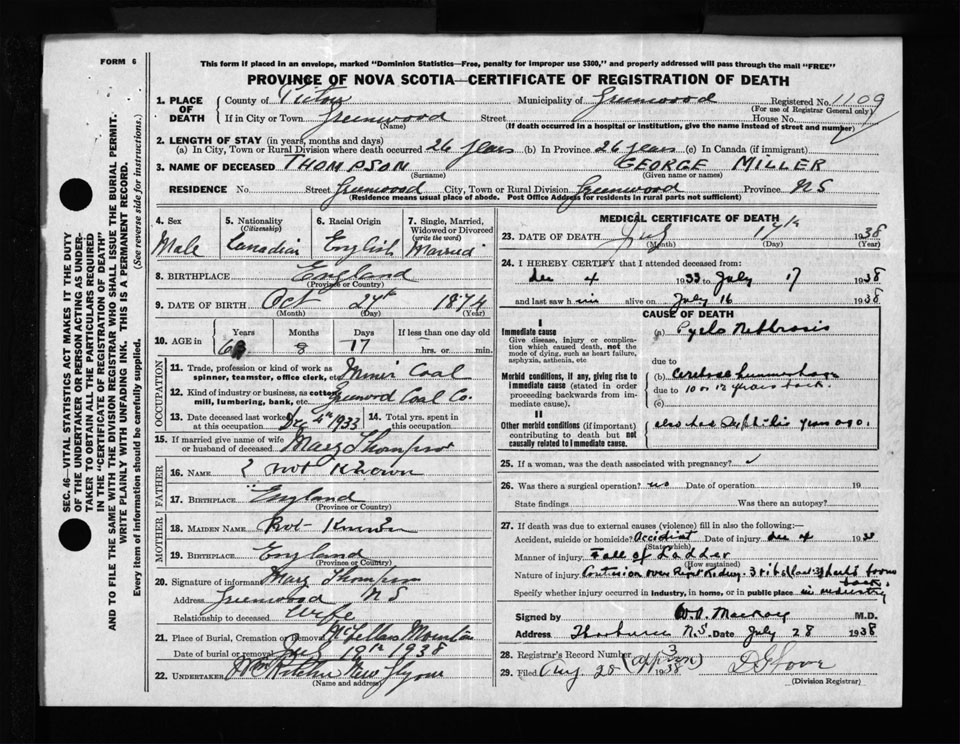 FORM 6
This form if placed in an envelope, marked "Dominion Statistics—Free, penalty for improper use $300," and properly addressed will pass through the mail "FREE"
PROVINCE OF NOVA SCOTIA—CERTIFICATE OF REGISTRATION OF DEATH
SEC. 46—VITAL STATISTICS ACT MAKES IT THE DUTY
OF THE UNDERTAKER OR PERSON ACTING AS UNDER-
TAKER TO OBTAIN ALL THE PARTICULARS REQUIRED
IN THE "CERTIFICATE OF REGISTRATION OF DEATH"
AND TO FILE THE SAME WITH THE DIVISION REGISTRAR WHO SHALL ISSUE THE BURIAL PERMIT.
WRITE PLAINLY WITH UNFADING INK. THIS IS A PERMANENT RECORD.
Every item of information should be carefully supplied. (See reverse side for instructions.)
1. PLACE OF DEATH County of Pictou Municipality of Greenwood Registered No. 1109
(For use of Registrar General only)
If in City or Town Greenwood Street House No.
(Name) (If death occurred in a hospital or institution, give the name instead of street and number)
2. LENGTH OF STAY (in years, months and days)
(a) In City, Town or Rural Division where death occurred 26 years (b) In Province 26 years (c) In Canada (if immigrant)
3. NAME OF DECEASED THOMPSON GEORGE MILLER
(Surname) (Given name or names)
RESIDENCE No Street Greenwood City, Town or Rural Division Greenwood Province NS
(Residence means usual place of abode. Post Office Address for residents in rural parts not sufficient)
4. Sex 5. Nationality (Citizenship) 6. Racial Origin 7. Single, Married, Widowed or Divorced (write the word)
Male Canadian English Married
8. BIRTHPLACE England
(Province or Country)
9. DATE OF BIRTH Oct 24th 1874
(Month) (Day) (Year)
10. AGE in Years Months Days If less than one day old
8 17 hrs. or min.
OCCUPATION
11. Trade, profession or kind of work as spinner, teamster, office clerk, etc. Miner Coal
12. Kind of industry or business, as cotton mill, lumbering, bank, etc. Greenwood Coal Co.
13. Date deceased last worked at this occupation Dec 4th 1933 14. Total yrs. spent in this occupation
15. If married give name of wife or husband of deceased Mary Thompson
FATHER
16. NAME ? not Known
17. BIRTHPLACE England
(Province or Country)
MOTHER
18. MAIDEN NAME Not Known
19. BIRTHPLACE England
(Province or Country)
20. Signature of informant Mary Thompson
Address Greenwood NS
Relationship to deceased Wife
21. Place of Burial, Cremation or Removal McLellans Mountain
Date of burial or removal July 19th 1938
22. UNDERTAKER New Glasgow
(Name and address)
MEDICAL CERTIFICATE OF DEATH
23. DATE OF DEATH July 17th 1938
(Month) (Day) (Year)
24. I HEREBY CERTIFY that I attended deceased from:
Dec 4 1933 to July 17 1938
and last saw him alive on July 16 1938
CAUSE OF DEATH
I
Immediate cause (a) Pyelo Nethrosis
Give disease, injury or complica-
tion which caused death, not the
mode of dying, such as heart failure,
asphyxia, asthenia, etc
due to
Morbid conditions, if any, giving rise to
immediate cause (stated in order
proceeding backwards from
immediate cause).
(b) Cerebral hemorrhage
due to 10 or 12 years back.
(c)
II
Other morbid conditions (if important)
contributing to death but not
causally related to immediate cause.
also has Syphilis years ago.
25. If a woman, was the death associated with pregnancy?
26. Was there a surgical operation? no Date of operation 19
State findings Was there an autopsy?
27. If death was due to external causes (violence) fill in also the following:—
Accident, suicide or homicide? Accident Date of injury Dec 4 1933
(State which)
Manner of injury Fall of Ladder
(How sustained)
Nature of injury Contusion over Right Kidney. 3 ribs
back.
Specify whether injury occurred in industry, in home, or in public place in industry
Signed by M.D.
Address Thorburn N.S. Date July 28 1938
28. Registrar's Record Number 3
29. Filed Aug 20 1938
(Division Registrar)